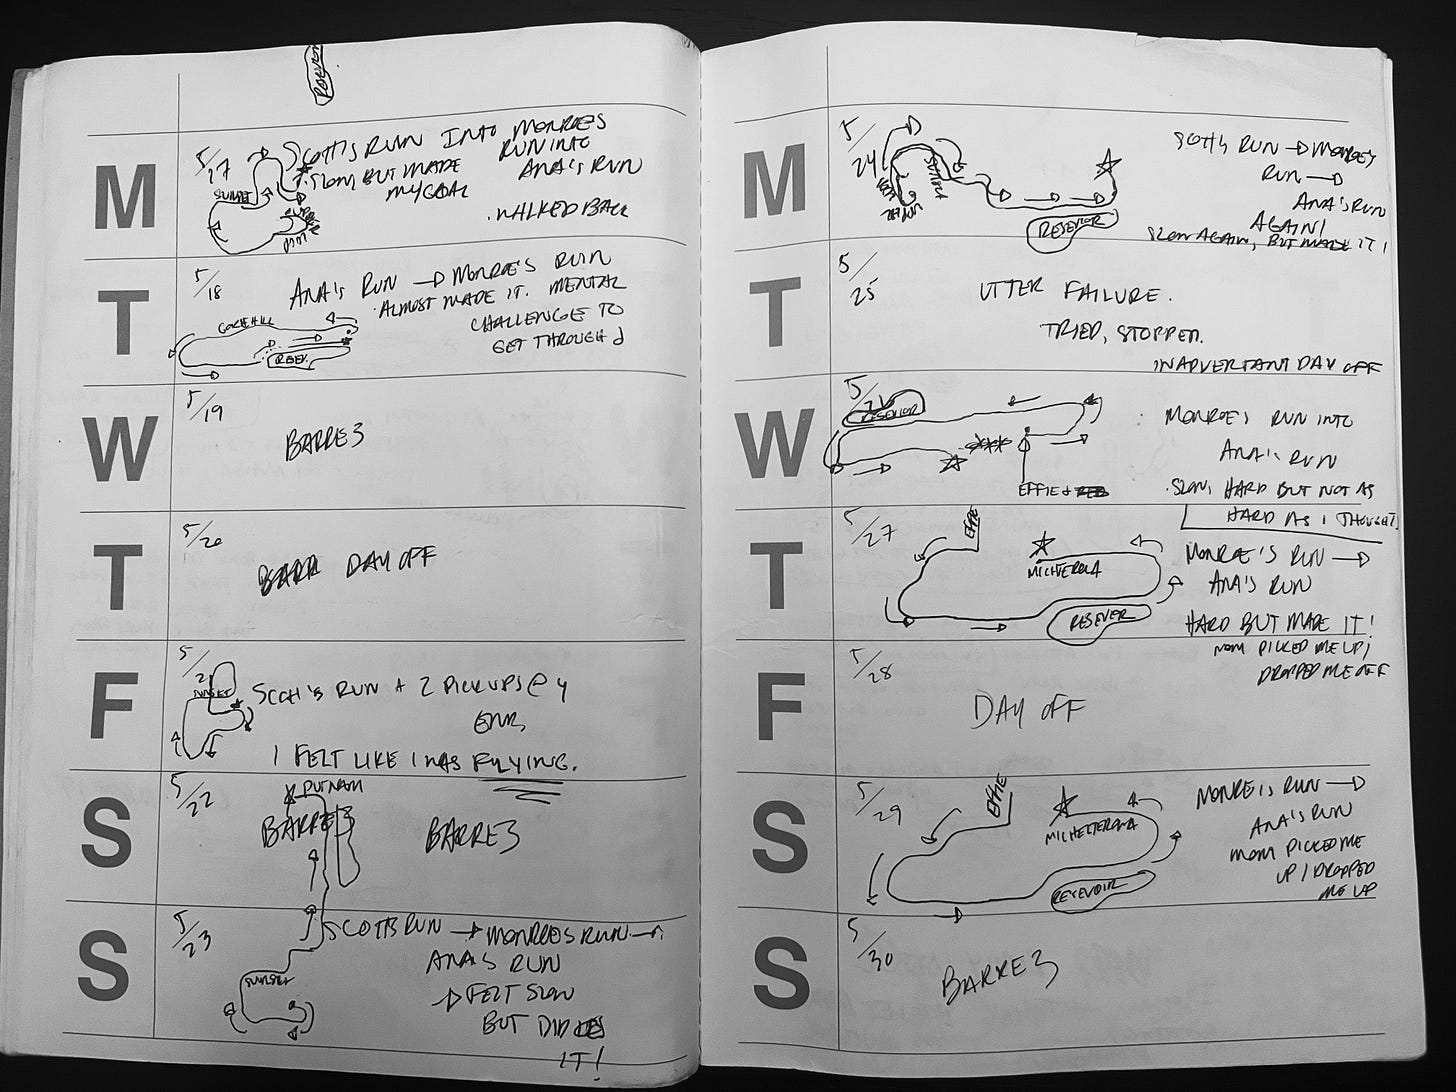 RESEVOIR
M
5/17
SCOTT'S RUN INTO MONROES
RUN INTO
ANA'S RUN
. SLOW BUT MADE
MY GOAL
. WALKED BACK
SUNSET
T
5/18
ANA'S RUN → MONROE'S RUN
. ALMOST MADE IT. MENTAL
CHALLENGE TO
GET THROUGH
RESEV.
W
5/19
BARRE3
T
5/20
DAY OFF
F
5/21
SUNSET
SCOTT'S RUN + 2 PICK UPS @ 4
I FELT LIKE I WAS FLYING.
S
5/22
PUTNAM
BARRE3
BARRE3
S
5/23
SCOTTS RUN → MONROES RUN →
ANA'S RUN
→ FELT SLOW
BUT DID
IT!
SUNSET
M
5/24
SUNSET
RESEVIOR
SCOTT'S RUN → MONROE'S
RUN →
ANA'S RUN
AGAIN!
SLOW AGAIN, BUT MADE IT!
T
5/25
UTTER FAILURE.
TRIED, STOPPED.
INADVERTANT DAY OFF
W
5/26
RESEVIOR
EFFIE +
MONROE'S RUN INTO
ANA'S RUN
. SLOW, HARD BUT NOT AS
HARD AS I THOUGHT
T
5/27
EFFIE
MICHTEROLA
RESEVER
MONROE'S RUN →
ANA'S RUN
HARD BUT MADE IT!
MOM PICKED ME UP/
DROPPED ME OFF
F
5/28
DAY OFF
S
5/29
EFFIE
RESEVOIR
MONROE'S RUN →
ANA'S RUN
MOM PICKED ME
UP / DROPPED
ME UP
S
5/30
BARRE3